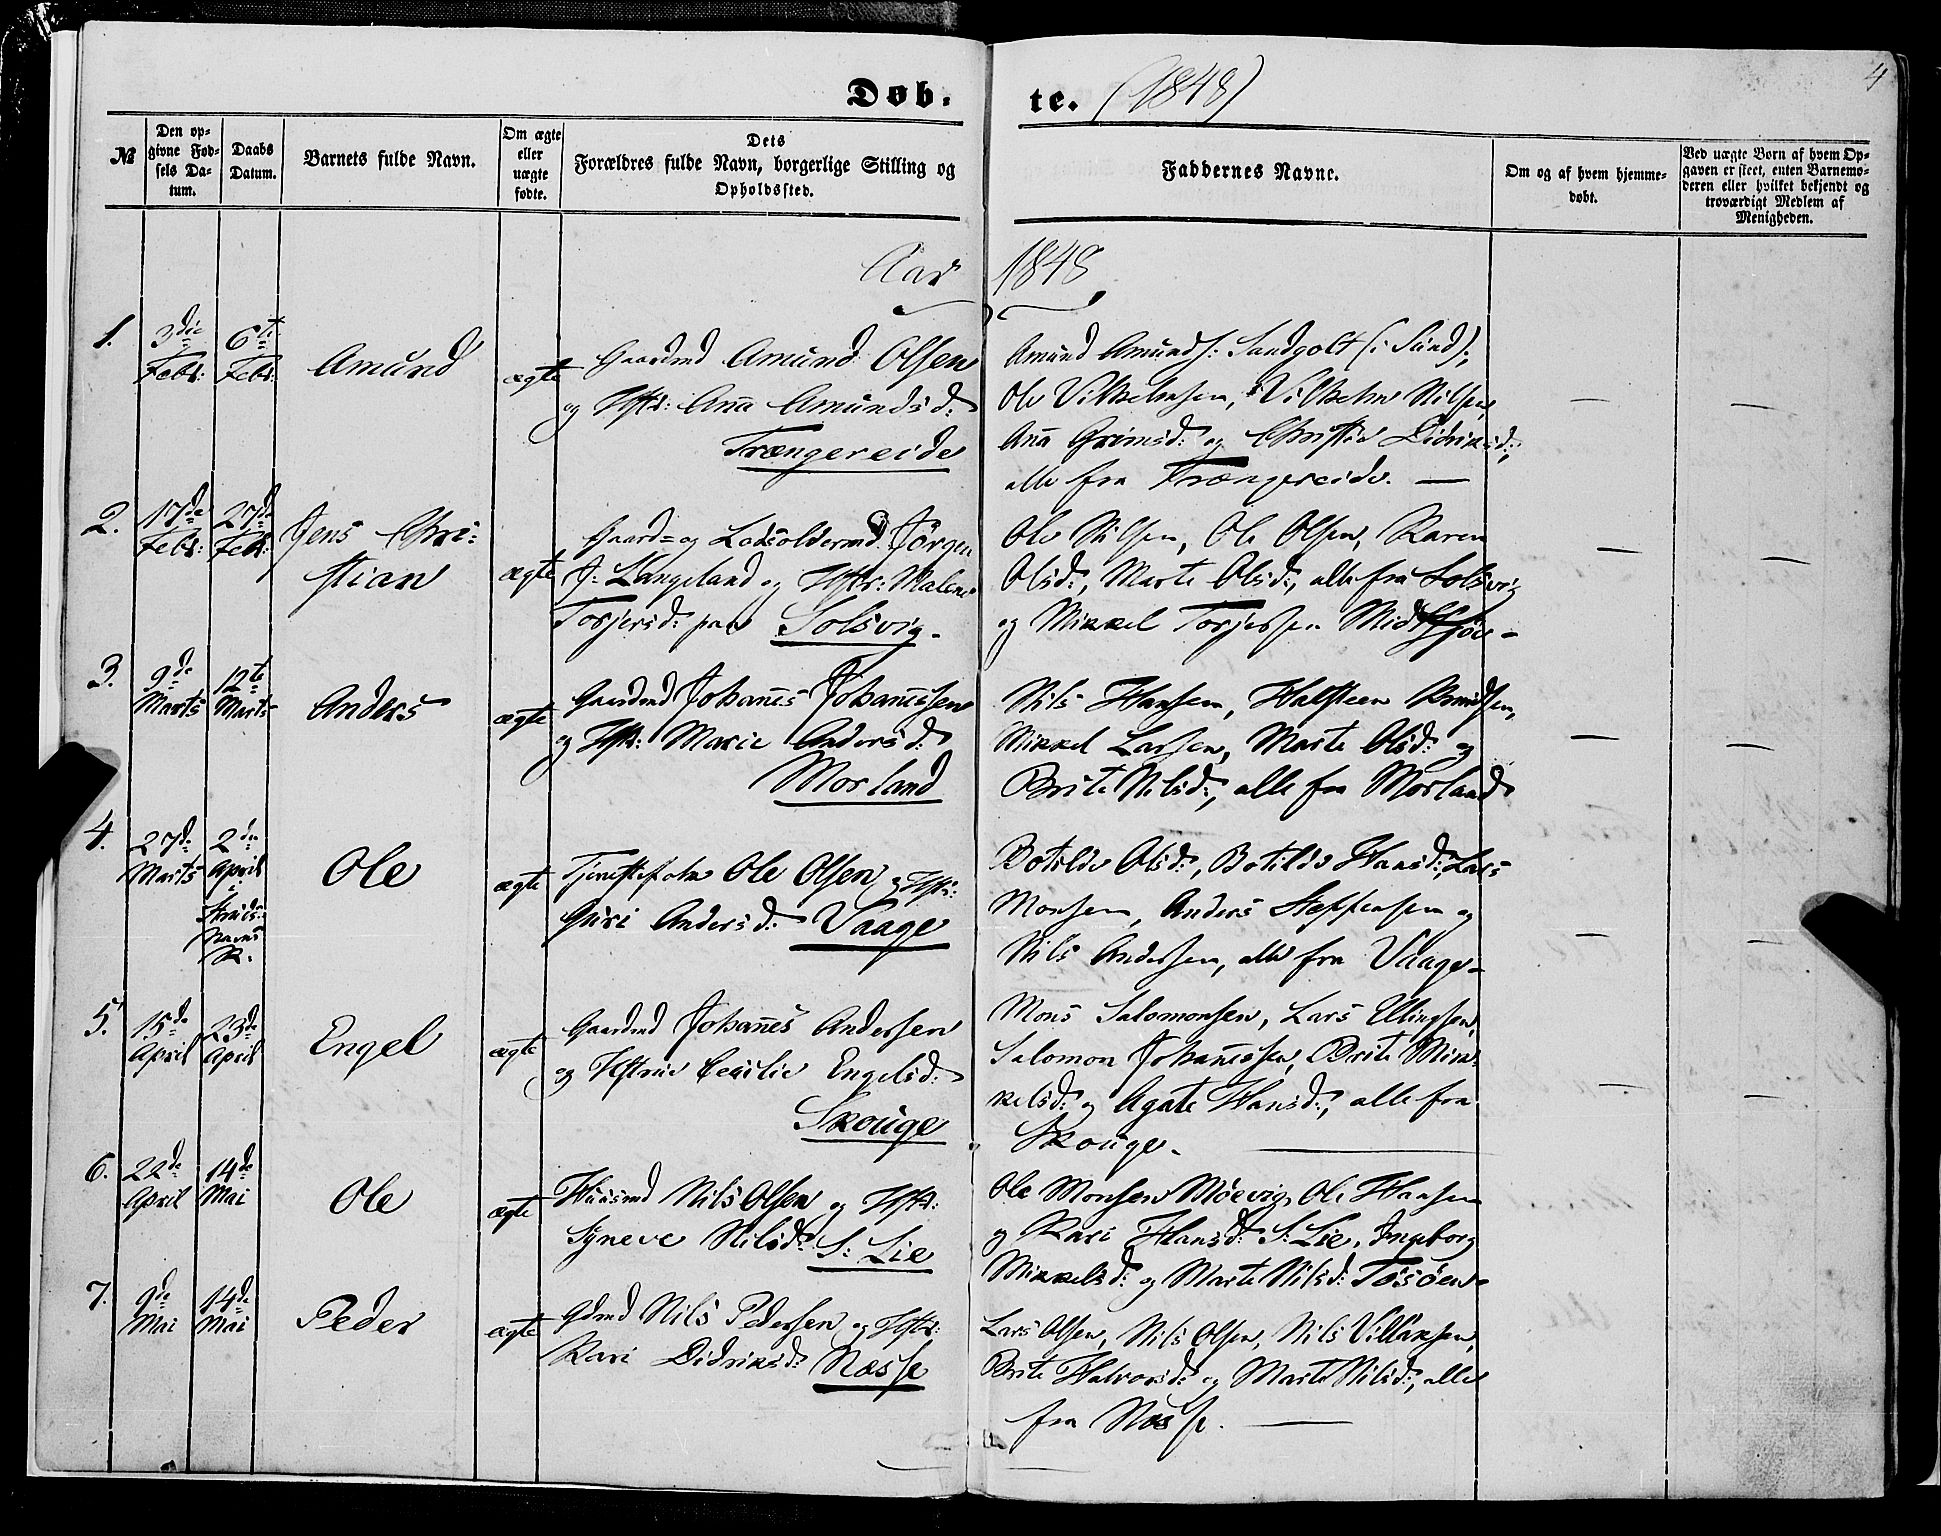 Døb- te. (1848)
4
№
Den op-
givne Fød-
sels Da-
tum.
Daabs
Datum.
Barnets fulde Navn.
Om ægte
eller
uægte
fødte.
Dets
Forældres fulde Navn, borgerlige Stilling og
Opholdssted.
Faddernes Navne.
Om og af hvem hjemme-
døbt.
Ved uægte Børn af hvem Op-
gaven er skeet, enten Barnemo-
deren eller hvilket bekjendt og
troværdigt Medlem af
Menigheden.
Aar 1848
1.
3die
Febr:
6te
Febr:
Amund
ægte
Gaardmd Amund Olsen
og Hstr: Anna Amundsd:
Trængereide
Amund Amunds: Sandgolt (i Sund);
Ole Vilhelmsen, Vilhelm Nilsen,
Anna Grimsd: og Christie Didriksd:,
alle fra Trængereide. —
—
—
2.
17de
Febr:
27de
Febr:
Jens Chri-
stian
ægte
Gaard- og Lodsoldermd Jörgen
J: Langeland og Hstr: Malene
Torjersd: paa Solsvig.
Ole Nilsen, Ole Olsen, Karen
Olsd:, Marte Olsd:, alle fra Solsvig
og Mikkel Torjersen
—
—
3.
9de
Marts
12te
Marts
Anders
ægte
Gaardmd Johannes Johannessen
og Hstr: Marie Andersd:
Morland
Nils Hansen, Halsteen
Mikkel Larsen, Marte Olsd: og
Brite Nilsd:, alle fra Morland
—
—
4.
27de
Marts
2den
April
i
Navns
K.
Ole
ægte
Tjenestefolk Ole Olsen og Hstr:
Guri Andersd: Vaage
Botilde Olsd:, Botilde Hansd:, Lars
Monsen, Anders Steffensen og
Nils Andersen, alle fra Vaage.
—
—
5.
15de
April
23de
April
Engel
ægte
Gaardmd Johannes Andersen
og Hstrue Cecilie Engelsd:
Skouge
Mons Salomonsen, Lars Ellingsen,
Salomon Johannessen, Brite Mik-
kelsd: og Agate Hansd:, alle fra
Skouge.
—
—
6.
22de
April
14de
Mai
Ole
ægte
Huusmd Nils Olsen og Hstr:
Syneve Nilsd: S: Lie
Ole Monsen Möevig, Ole Hansen
og Kari Hansd: S: Lie, Ingeborg
Mikkelsd: og Marte Nilsd: Tösöen.
7.
9de
Mai
14de
Mai
Peder
ægte
Gdmd Nils Pedersen og Hstr:
Kari Didriksd: Næsse
Lars Olsen, Nils Olsen, Nils Villumsen,
Brite Halvorsd: og Marte Nilsd:, alle
fra Næsse. —